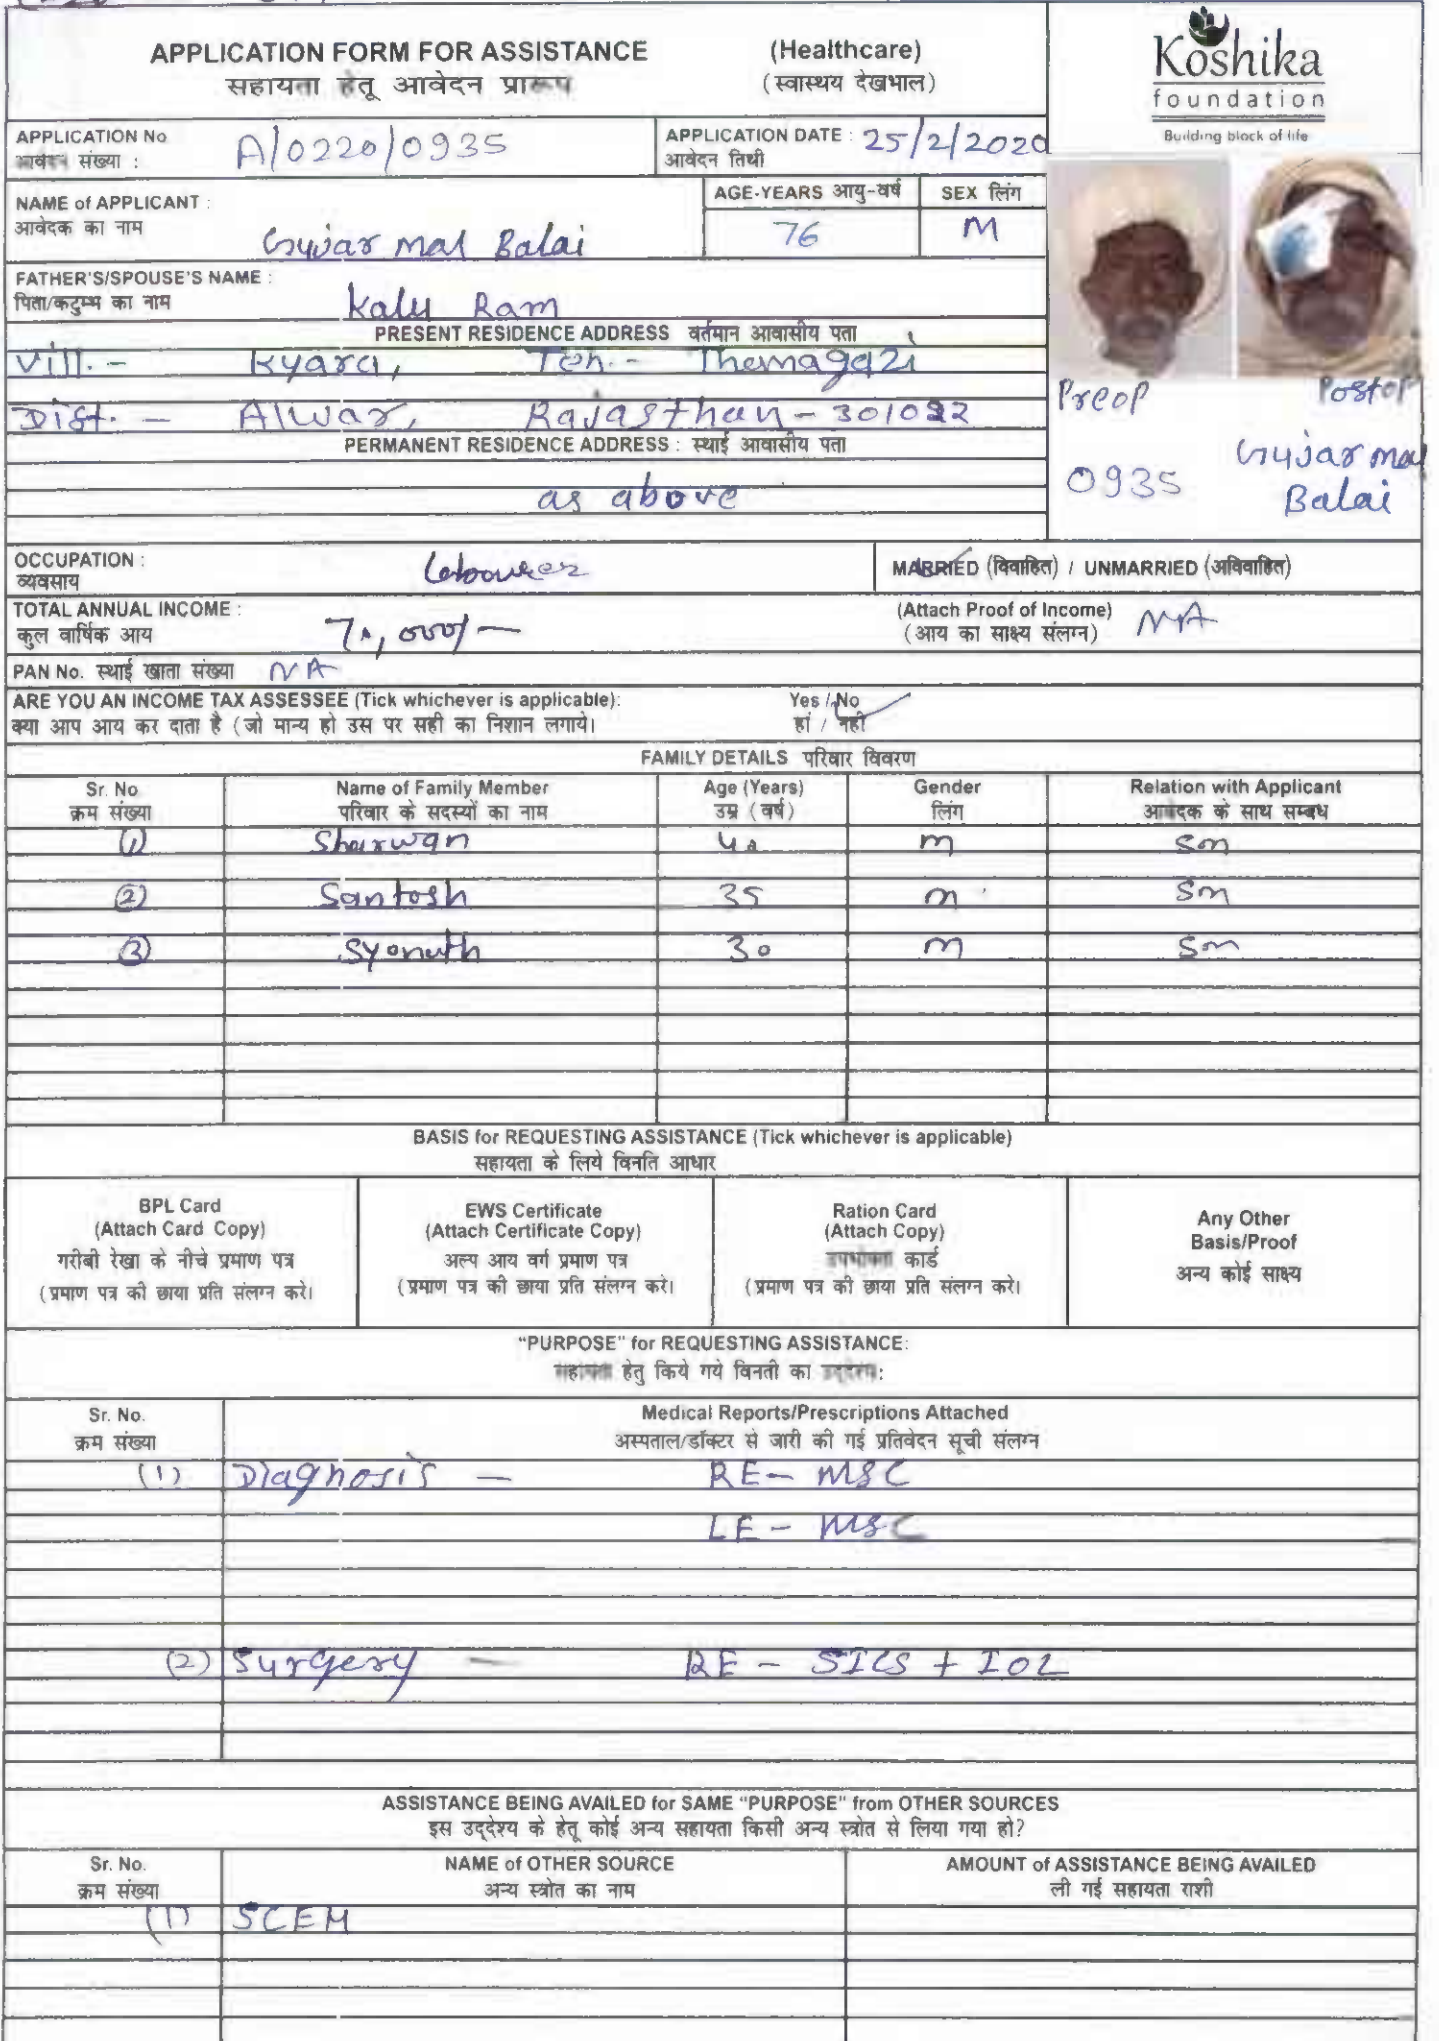 APPLICATION FORM FOR ASSISTANCE (Healthcare)
सहायता हेतू आवेदन प्रारूप (स्वास्थय देखभाल)
Koshika
foundation
Building block of life
APPLICATION No
आवेदन संख्या : A/0220/0935
APPLICATION DATE : 25/2/2020
आवेदन तिथी
NAME of APPLICANT :
आवेदक का नाम Gujar mal Balai
AGE-YEARS आयु-वर्ष 76
SEX लिंग M
FATHER'S/SPOUSE'S NAME :
पिता/कटुम्भ का नाम Kalu Ram
PRESENT RESIDENCE ADDRESS वर्तमान आवासीय पता
Vill. - Kyara, Teh. - Thanagazi
Dist. - Alwar, Rajasthan - 301022
PERMANENT RESIDENCE ADDRESS : स्थाई आवासीय पता
as above
Preop Postop
0935 Gujar mal
Balai
OCCUPATION : Labourer
व्यवसाय
MARRIED (विवाहित) / UNMARRIED (अविवाहित)
TOTAL ANNUAL INCOME :
कुल वार्षिक आय 70,000/-
(Attach Proof of Income) NA
(आय का साक्ष्य संलग्न)
PAN No. स्थाई खाता संख्या NA
ARE YOU AN INCOME TAX ASSESSEE (Tick whichever is applicable): Yes / No
क्या आप आय कर दाता है (जो मान्य हो उस पर सही का निशान लगाये। हां / नहीं
FAMILY DETAILS परिवार विवरण
Sr. No. Name of Family Member Age (Years) Gender Relation with Applicant
क्रम संख्या परिवार के सदस्यों का नाम उम्र (वर्ष) लिंग आवेदक के साथ सम्बध
(1) Sharwan 40 m Son
(2) Santosh 35 m Son
(3) Syonath 30 m Son
BASIS for REQUESTING ASSISTANCE (Tick whichever is applicable)
सहायता के लिये विनति आधार
BPL Card
(Attach Card Copy)
गरीबी रेखा के नीचे प्रमाण पत्र
(प्रमाण पत्र की छाया प्रति संलग्न करे।
EWS Certificate
(Attach Certificate Copy)
अल्प आय वर्ग प्रमाण पत्र
(प्रमाण पत्र की छाया प्रति संलग्न करे।
Ration Card
(Attach Copy)
उपभोक्ता कार्ड
(प्रमाण पत्र की छाया प्रति संलग्न करे।
Any Other
Basis/Proof
अन्य कोई साक्ष्य
"PURPOSE" for REQUESTING ASSISTANCE:
सहायता हेतु किये गये विनती का उद्देश्य:
Sr. No. Medical Reports/Prescriptions Attached
क्रम संख्या अस्पताल/डॉक्टर से जारी की गई प्रतिवेदन सूची संलग्न
(1) Diagnosis - RE - MSC
LE - MSC
(2) Surgery - RE - SICS + IOL
ASSISTANCE BEING AVAILED for SAME "PURPOSE" from OTHER SOURCES
इस उद्देश्य के हेतू कोई अन्य सहायता किसी अन्य स्त्रोत से लिया गया हो?
Sr. No. NAME of OTHER SOURCE AMOUNT of ASSISTANCE BEING AVAILED
क्रम संख्या अन्य स्त्रोत का नाम ली गई सहायता राशी
(1) SCEH